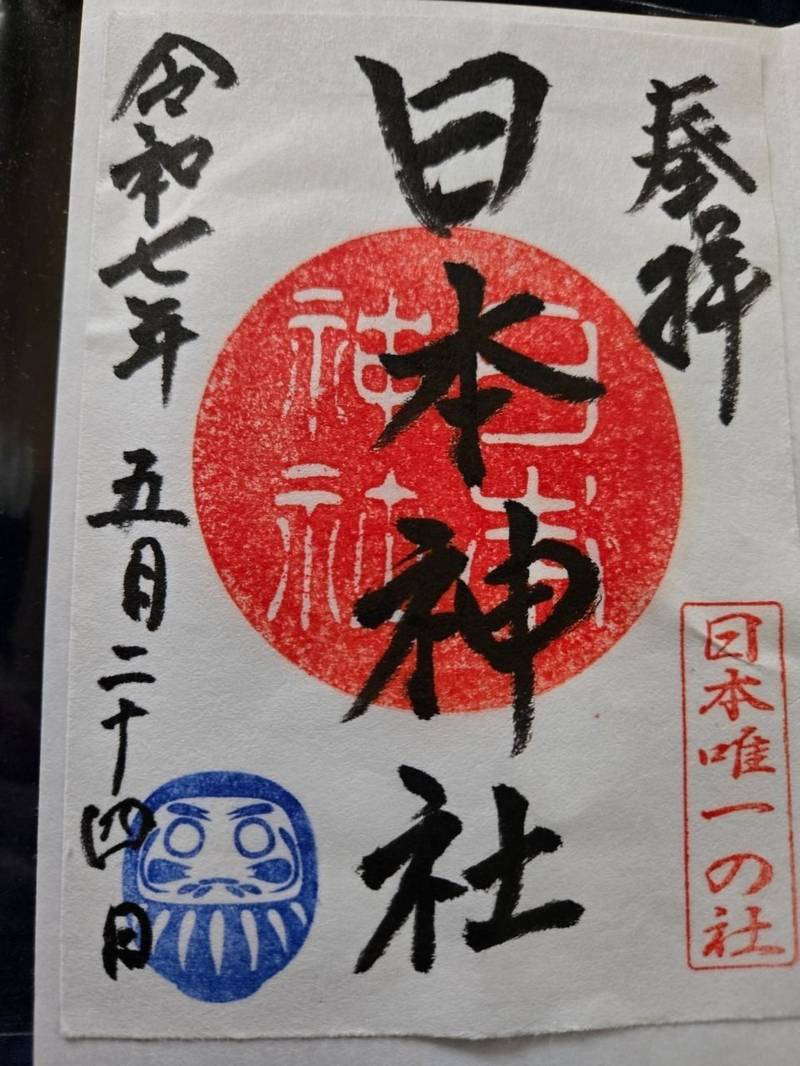 奉拝
日本唯一の社
日本神社
日本
神社
令和七年 五月二十四日